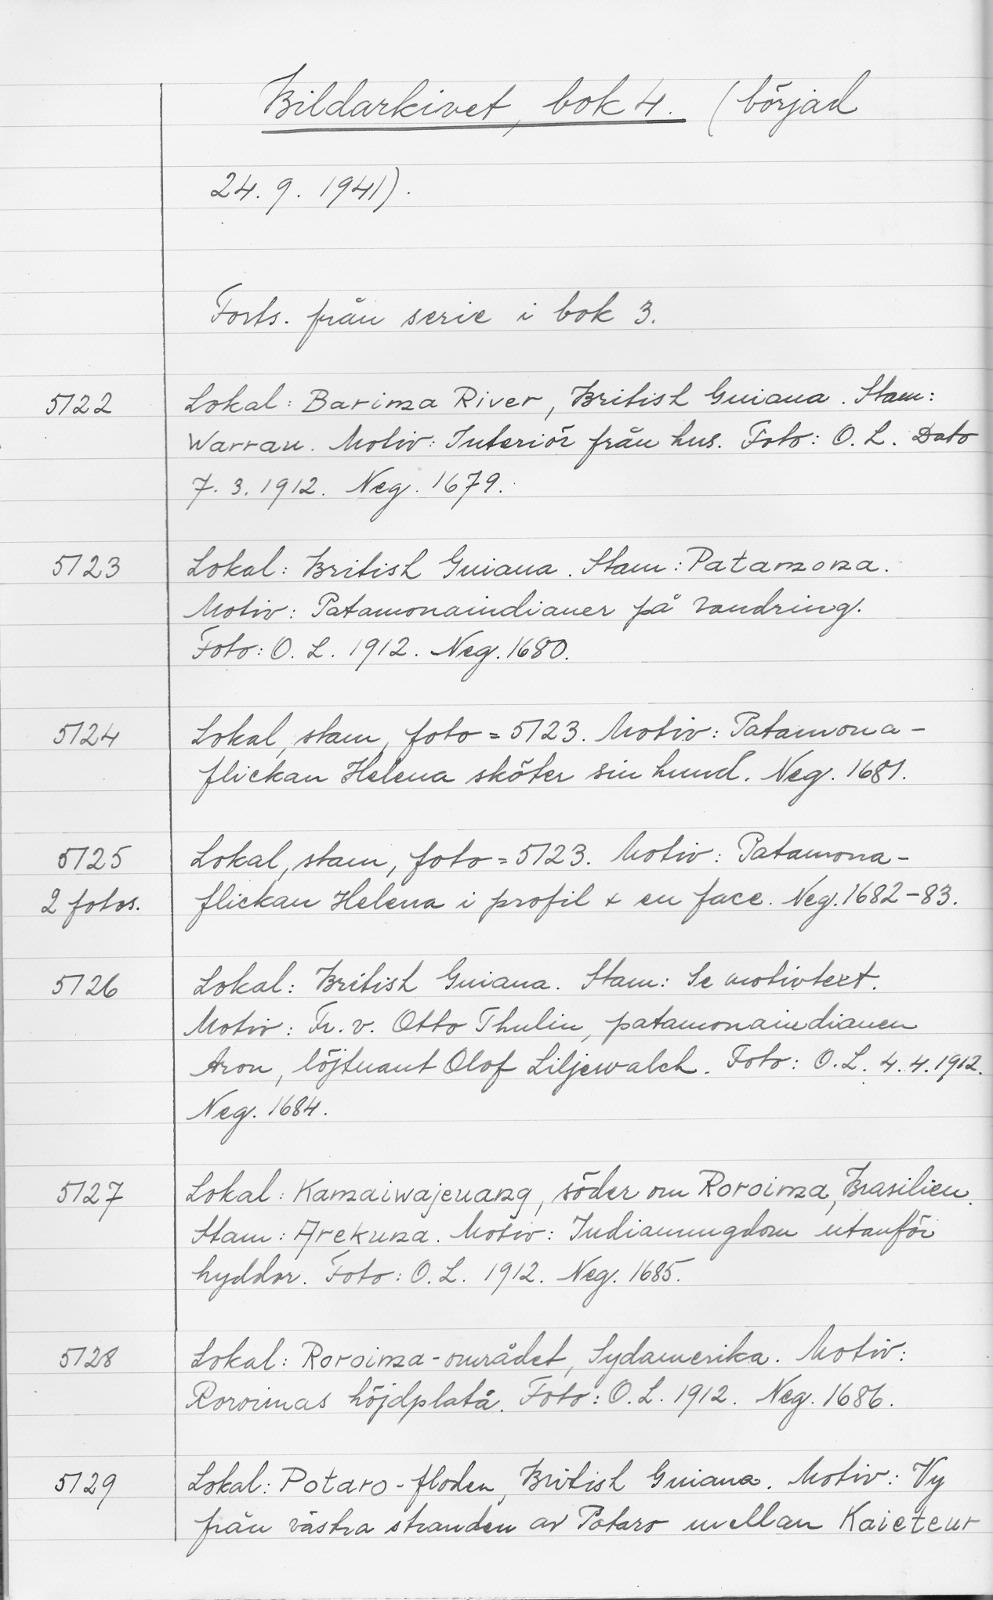 Bildarkivet, bok 4. (börjad
24. 9. 1941).
Forts. från serie i bok 3.
5122 Lokal: Barima River, British Guiana. Stam:
Warrau. Motiv: Interiör från hus. Foto: O. L. Dato
7. 3. 1912. Neg. 1679.
5123 Lokal: British Guiana. Stam: Patamona.
Motiv: Patamonaindianer på vandring.
Foto: O. L. 1912. Neg. 1680.
5124 Lokal, stam, foto = 5123. Motiv: Patamona-
flickan Helena sköter sin hund. Neg. 1681.
5125 Lokal, stam, foto = 5123. Motiv: Patamona-
2 fotos. flickan Helena i profil & en face. Neg. 1682-83.
5126 Lokal: British Guiana. Stam: Se motivtext.
Motiv: Fr. v. Otto Thulin, patamonaindianen
Aron, löjtnant Olof Liljewalch. Foto: O. L. 4. 4. 1912.
Neg. 1684.
5127 Lokal: Kamaiwajenang, söder om Roroima, Brasilien.
Stam: Arekuna. Motiv: Indianungdom utanför
hyddor. Foto: O. L. 1912. Neg. 1685.
5128 Lokal: Roroima-området, Sydamerika. Motiv:
Roroimas höjdplatå. Foto: O. L. 1912. Neg. 1686.
5129 Lokal: Potaro-floden, British Guiana. Motiv: Vy
från västra stranden av Potaro mellan Kaieteur